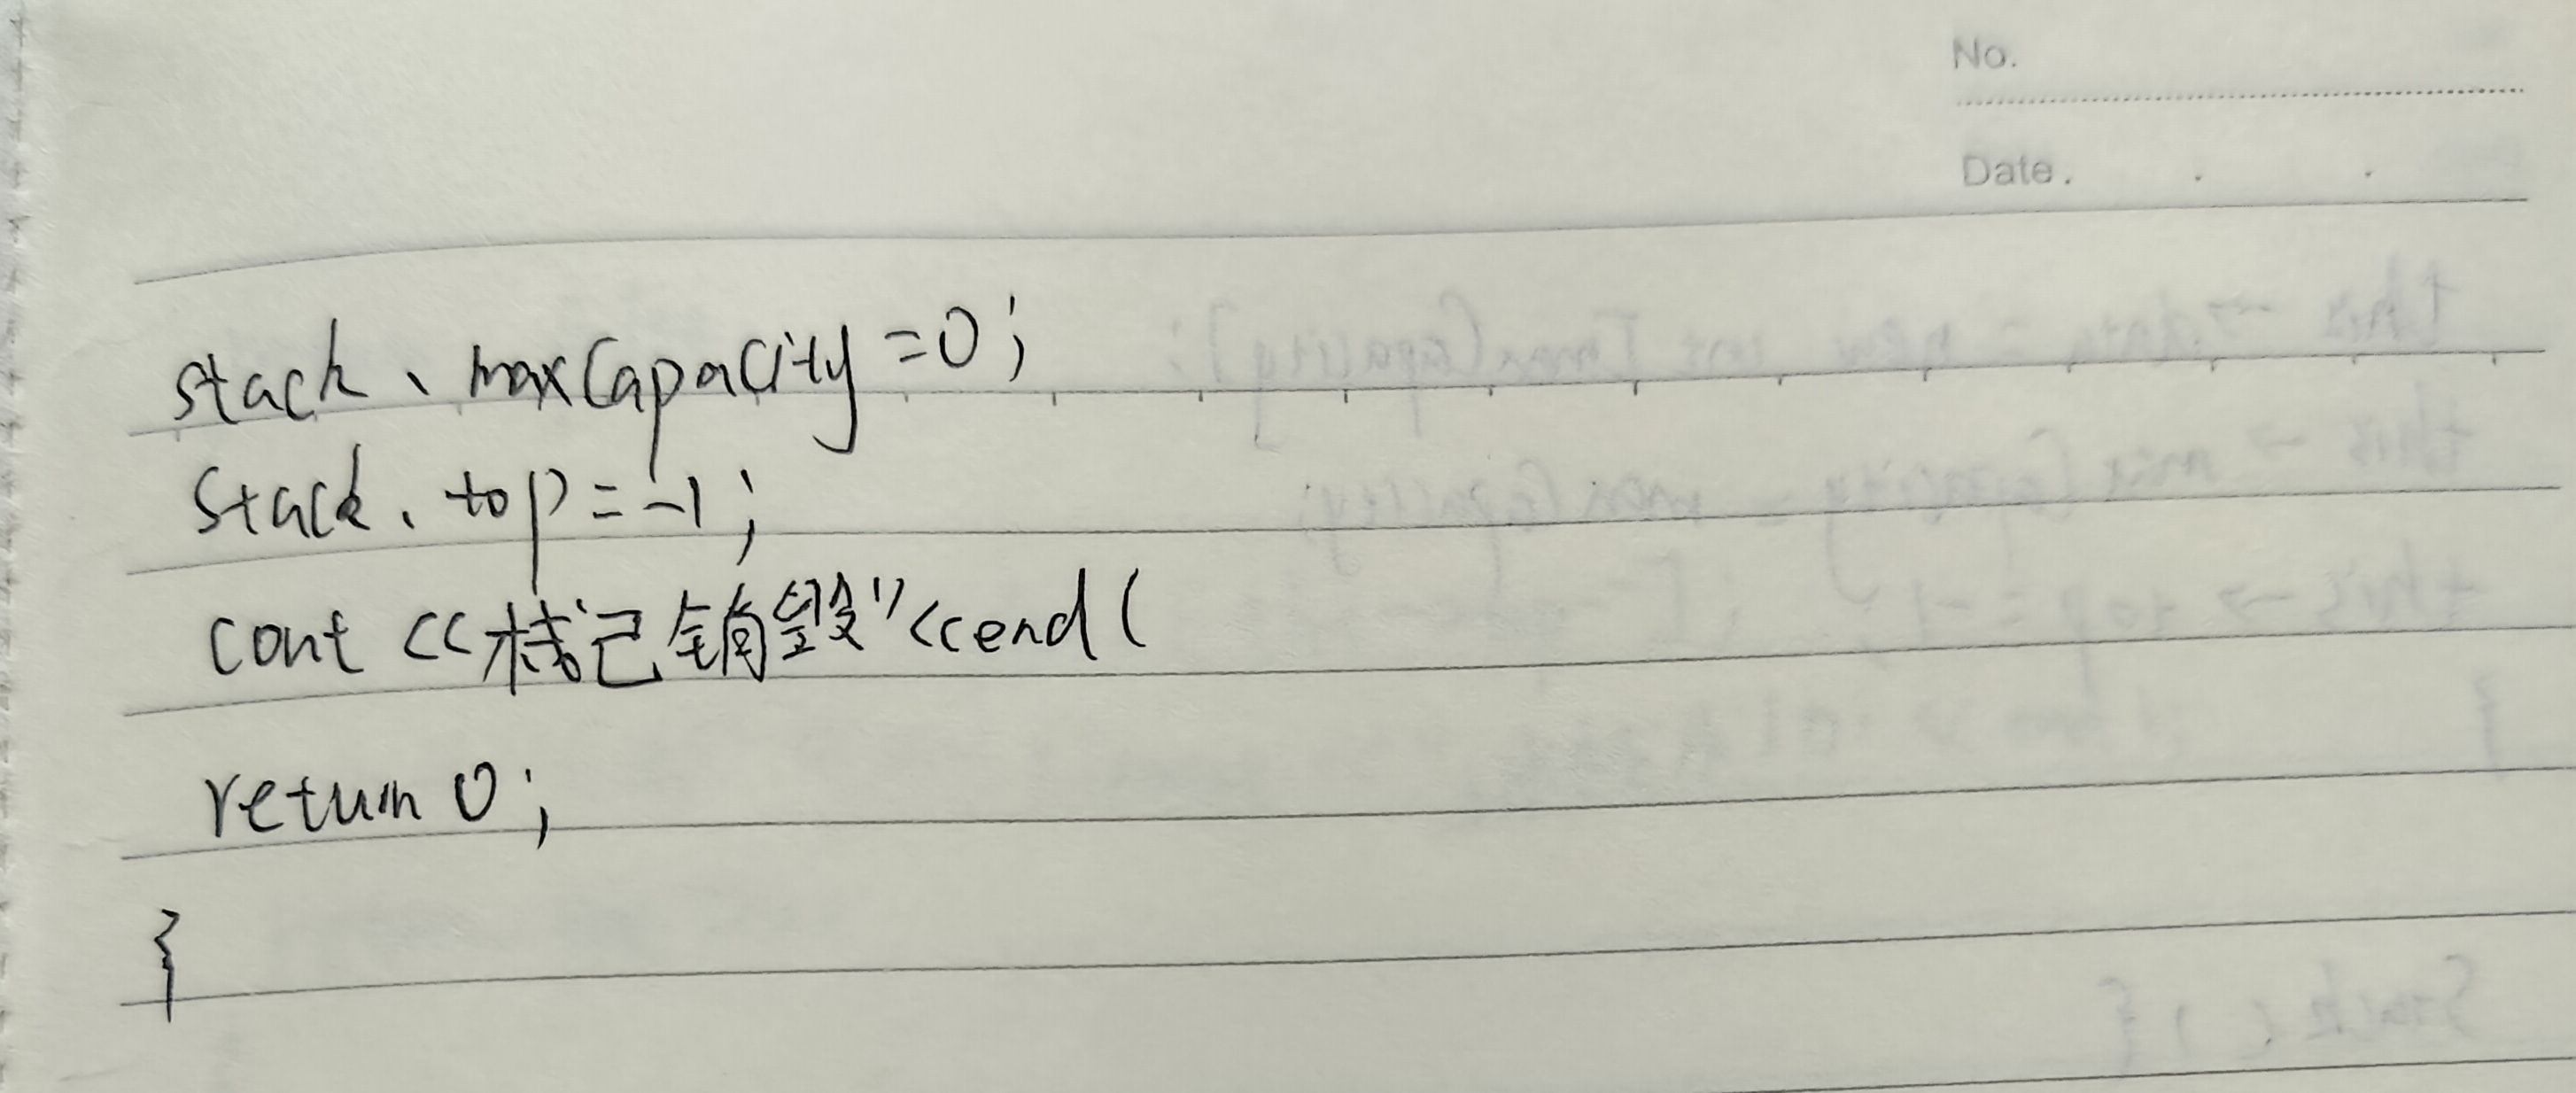 No.
Date.
stack、maxCapacity=0;
stack、top=-1;
cout <<栈已销毁"<<endl
return 0;
}